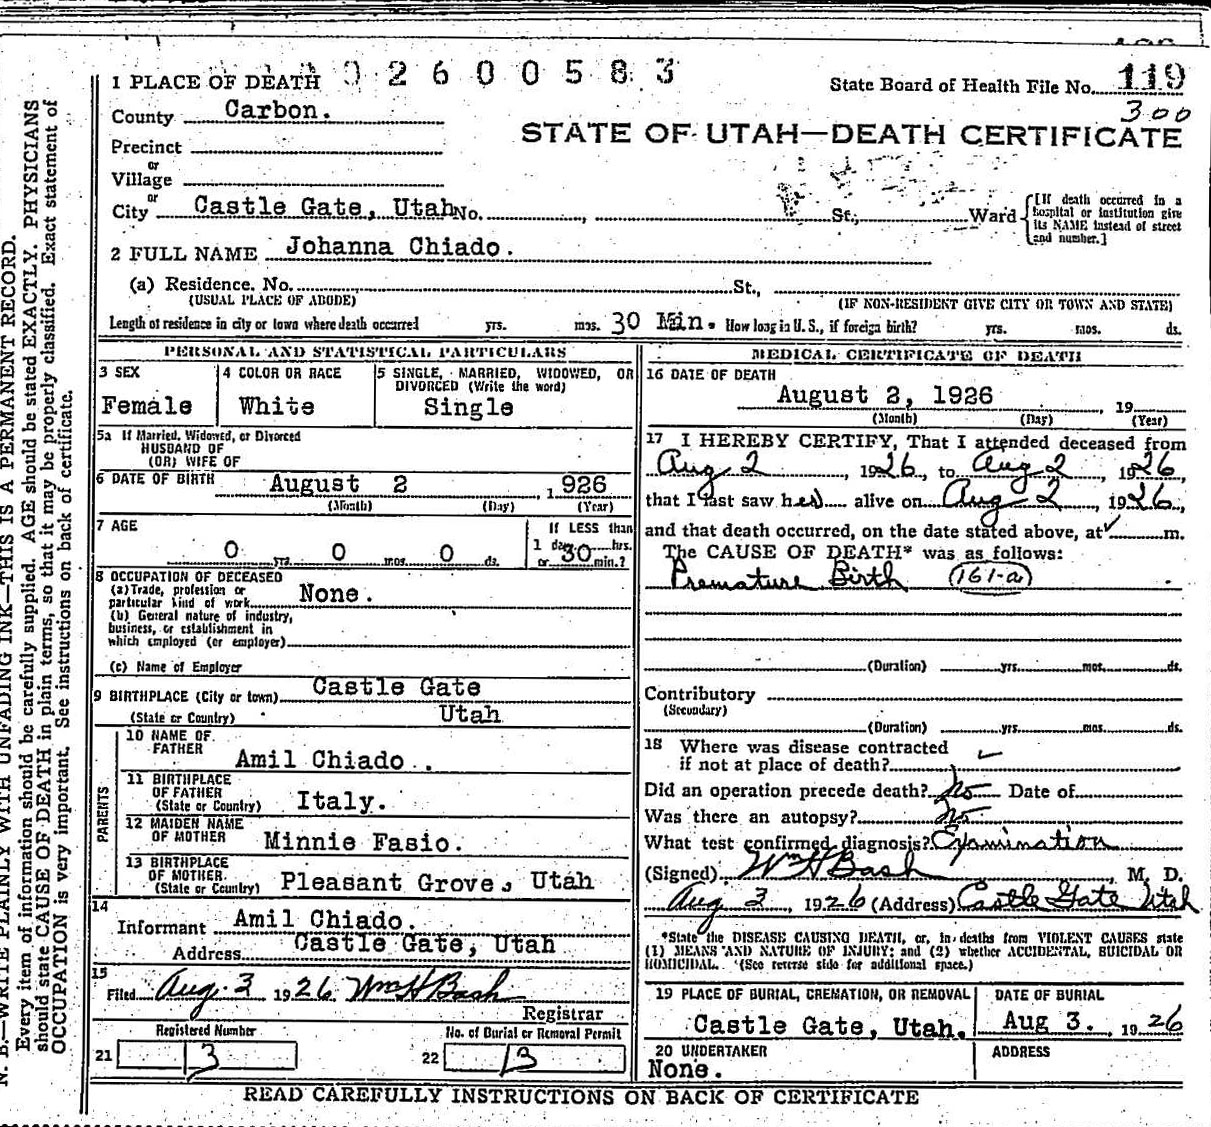 1 PLACE OF DEATH
0 2 6 0 0 5 8 3
State Board of Health File No. 119
300
County Carbon.
STATE OF UTAH—DEATH CERTIFICATE
Precinct
or
Village
or
City Castle Gate, Utah No. , St., Ward
[If death occurred in a hospital or institution give its NAME instead of street and number.]
2 FULL NAME Johanna Chiado.
(a) Residence. No. St.,
(USUAL PLACE OF ABODE) (IF NON-RESIDENT GIVE CITY OR TOWN AND STATE)
Length of residence in city or town where death occurred yrs. mos. 30 Min. How long in U. S., if foreign birth? yrs. mos. ds.
PERSONAL AND STATISTICAL PARTICULARS
3 SEX
Female
4 COLOR OR RACE
White
5 SINGLE, MARRIED, WIDOWED, OR
DIVORCED (Write the word)
Single
5a If Married, Widowed, or Divorced
HUSBAND OF
(OR) WIFE OF
6 DATE OF BIRTH August 2, 1926
(Month) (Day) (Year)
7 AGE
0 yrs. 0 mos. 0 ds.
If LESS than
1 day hrs.
or 30 min.?
8 OCCUPATION OF DECEASED
(a) Trade, profession or
particular kind of work None.
(b) General nature of industry,
business, or establishment in
which employed (or employer)
(c) Name of Employer
9 BIRTHPLACE (City or town) Castle Gate
(State or Country) Utah
PARENTS
10 NAME OF
FATHER Amil Chiado.
11 BIRTHPLACE
OF FATHER
(State or Country) Italy.
12 MAIDEN NAME
OF MOTHER Minnie Fasio.
13 BIRTHPLACE
OF MOTHER
(State or Country) Pleasant Grove, Utah
14
Informant Amil Chiado.
Address Castle Gate, Utah
15
Filed Aug. 3 1926 Wm H Bash
Registrar
Registered Number
21 3
No. of Burial or Removal Permit
22 3
MEDICAL CERTIFICATE OF DEATH
16 DATE OF DEATH
August 2, 1926 , 19
(Month) (Day) (Year)
17 I HEREBY CERTIFY, That I attended deceased from
Aug 2 1926, to Aug 2 1926
that I last saw her alive on Aug 2, 1926,
and that death occurred, on the date stated above, at m.
The CAUSE OF DEATH* was as follows:
Premature Birth (161-a)
(Duration) yrs. mos. ds.
Contributory
(Secondary)
(Duration) yrs. mos. ds.
18 Where was disease contracted
if not at place of death?
Did an operation precede death? No Date of
Was there an autopsy? No
What test confirmed diagnosis? Examination
(Signed) Wm H Bash, M. D.
Aug 3, 1926 (Address) Castle Gate Utah
*State the DISEASE CAUSING DEATH, or, in deaths from VIOLENT CAUSES state
(1) MEANS AND NATURE OF INJURY; and (2) whether ACCIDENTAL, SUICIDAL OR
HOMICIDAL. (See reverse side for additional space.)
19 PLACE OF BURIAL, CREMATION, OR REMOVAL
Castle Gate, Utah.
DATE OF BURIAL
Aug 3. 1926
20 UNDERTAKER
None.
ADDRESS
READ CAREFULLY INSTRUCTIONS ON BACK OF CERTIFICATE
N. B.—WRITE PLAINLY WITH UNFADING INK—THIS IS A PERMANENT RECORD.
Every item of information should be carefully supplied. AGE should be stated EXACTLY. PHYSICIANS
should state CAUSE OF DEATH in plain terms, so that it may be properly classified. Exact statement of
OCCUPATION is very important. See instructions on back of certificate.